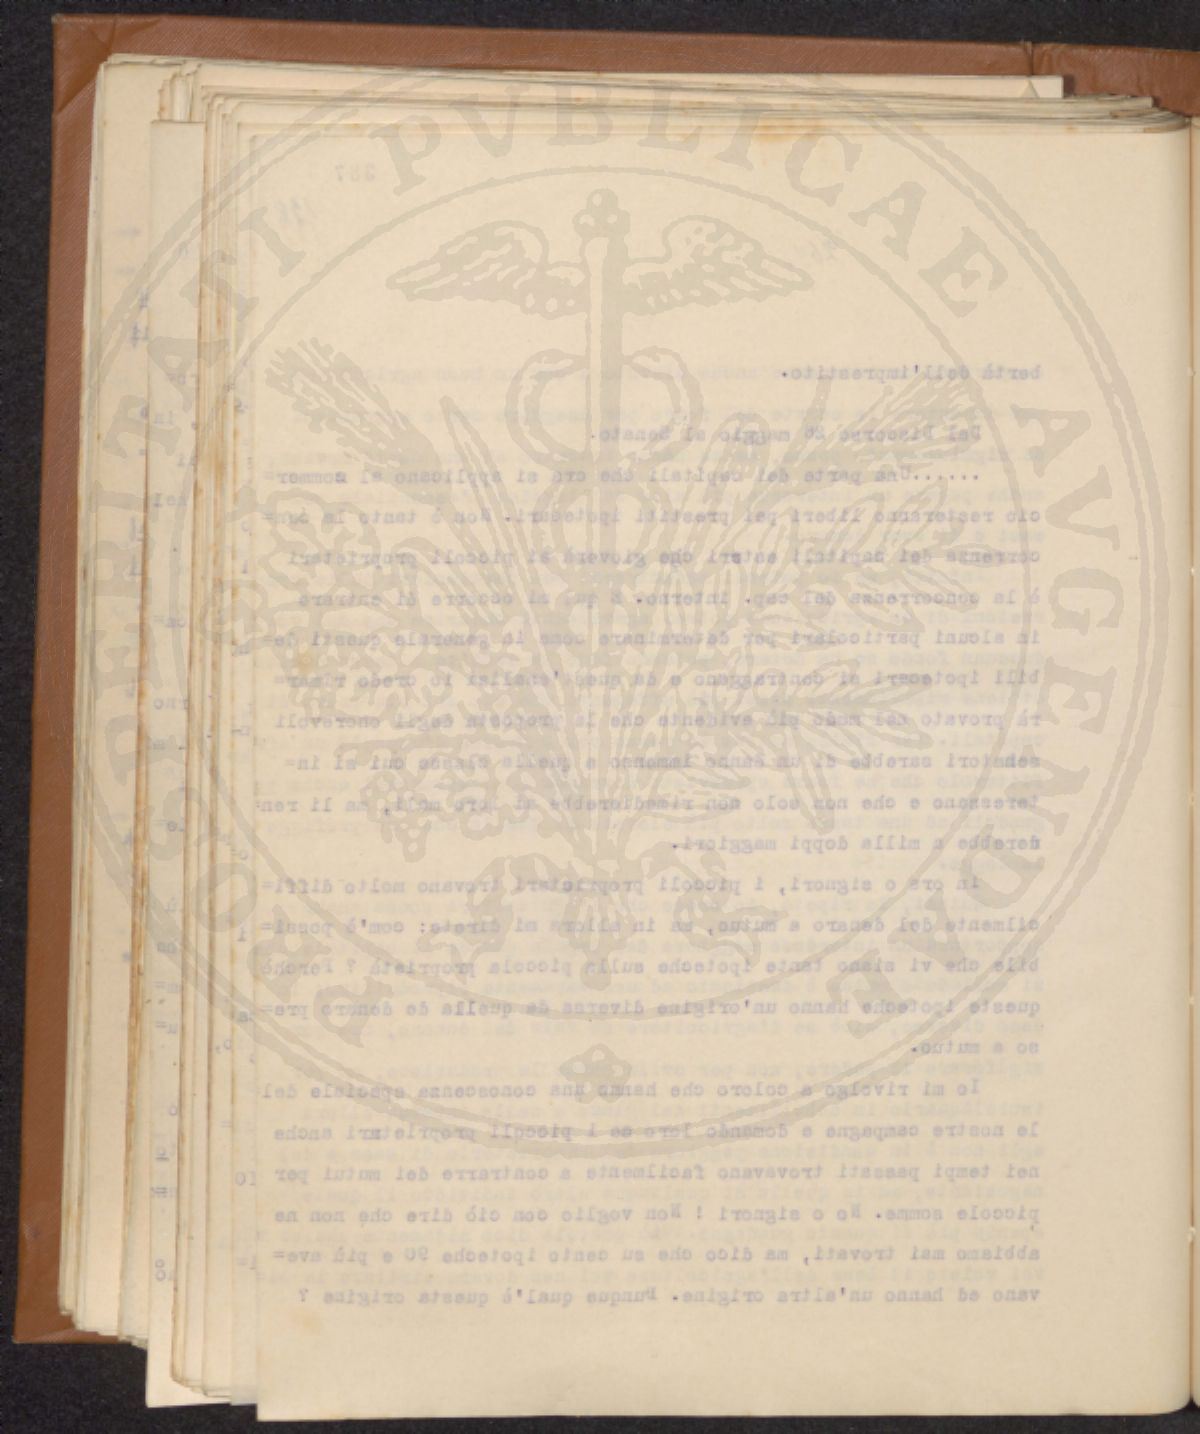 PROSPERITATI PVBLICAE AVGENDAE
287
bertà dell'imprestito.
Dal Discorso 26 maggio al Senato.
......Una parte dei capitali che ora si applicano al commer=
cio resteranno liberi pei prestiti ipotecari. Non è tanto la con=
correnza dei capitali esteri che gioverà ai piccoli proprietari
è la concorrenza del cap. interno. E qui mi occorre di entrare
in alcuni particolari per determinare come in generale questi de=
biti ipotecari si contraggano e da quest'analisi io credo rimar=
rà provato nel modo più evidente che la proposta degli onorevoli
senatori sarebbe di un danno immenso a quella classe cui si in=
teressano e che non solo non rimedierebbe ai loro mali, ma li ren=
derebbe a mille doppi maggiori.
in ora o signori, i piccoli proprietari trovano molto diffi=
cilmente del denaro a mutuo, ma in allora mi direte: com'è possi=
bile che vi siano tante ipoteche sulla piccola proprietà ? Perchè
queste ipoteche hanno un'origine diversa da quella de denaro pre=
so a mutuo.
Io mi rivolgo a coloro che hanno una conoscenza speciale del=
le nostre campagne e domando loro se i piccoli proprietari anche
nei tempi passati trovavano facilmente a contrarre dei mutui per
piccole somme. No o signori ! Non voglio con ciò dire che non ne
abbiamo mai trovati, ma dico che su cento ipoteche 90 e più ave=
vano ed hanno un'altra origine. Dunque qual'è questa origine ?